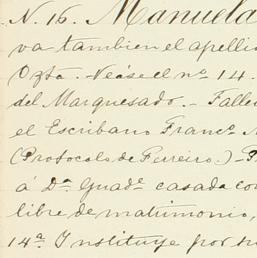 N. 16. Manuela
va tambien el apelli
Ozta. Vease el nº 14.
del Marquesado. - Falle
el Escribano Francº
(Protocolo de Ferreiro.) -
á Dª Guadᵉ casada co
libre de matrimonio,
14ª Instituye por